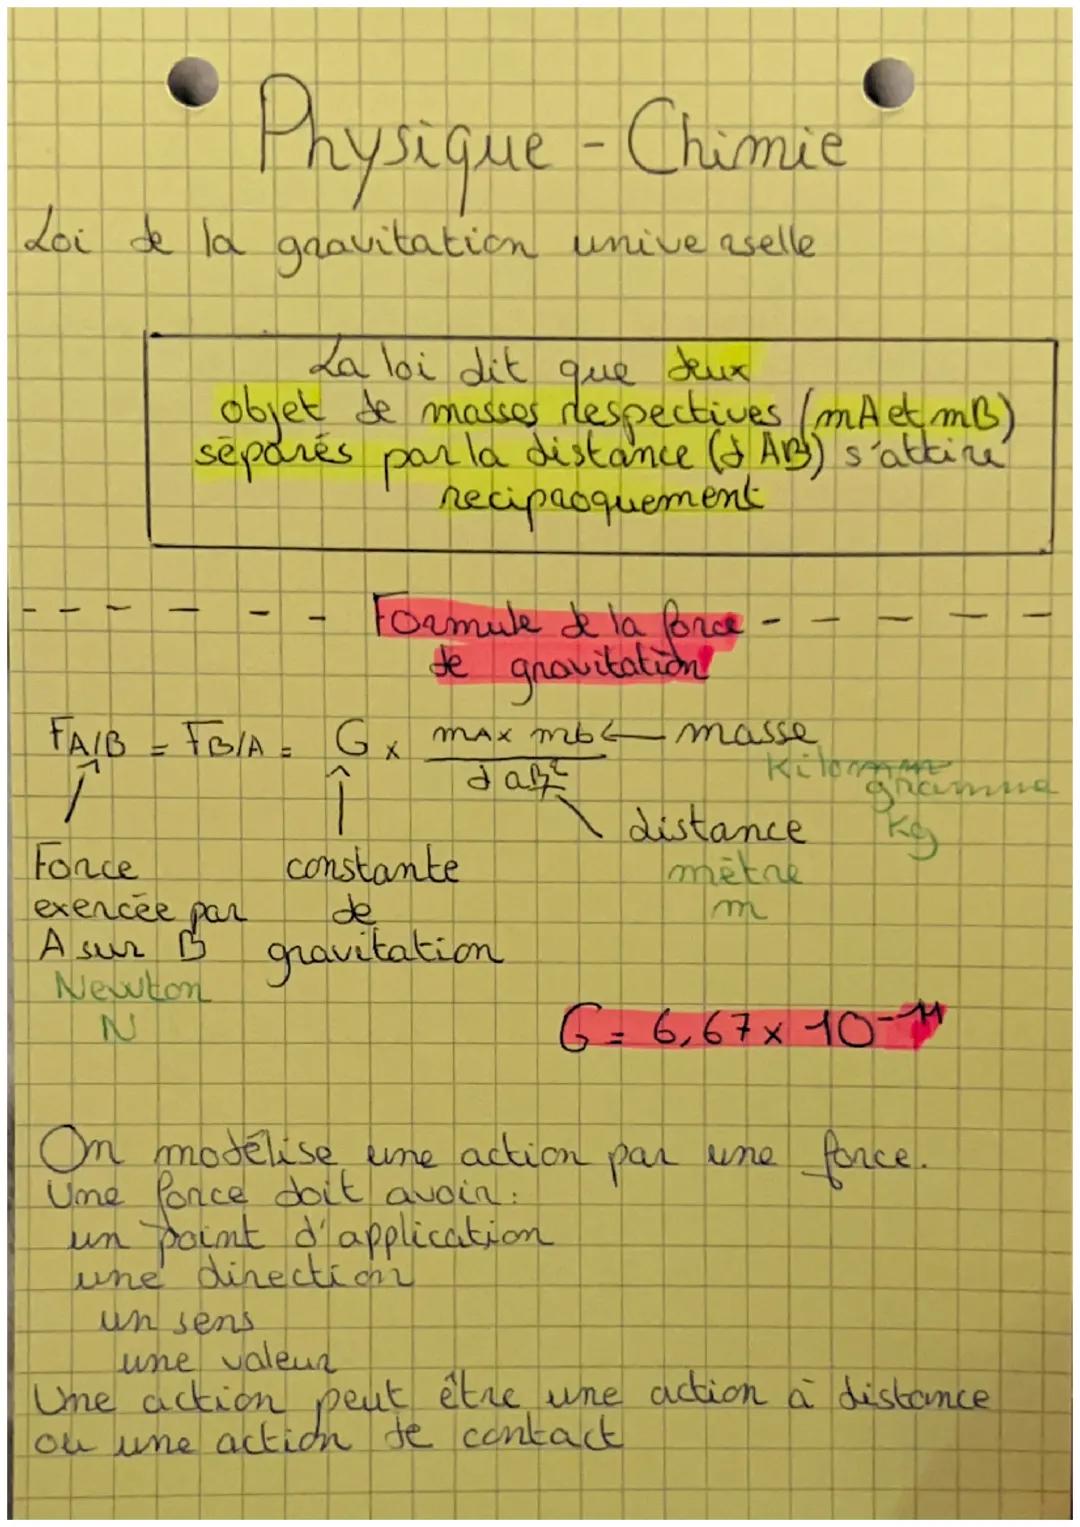 Physique - Chimie
Loi de la gravitation universelle
La loi dit que deux
objet de masses respectives (mA et mB)
séparés par la distance (d AB) s'attire
reciproquement
Formule de la force
de gravitation
FA/B = FB/A = G x mA x mb / d AB² ← masse
Kilo gramme
kg
distance
mètre
m
Force
exercée par
A sur B
Newton
N
constante
de
gravitation
G = 6,67 x 10⁻¹¹
On modélise une action par une force.
Une force doit avoir :
un point d'application
une direction
un sens
une valeur
Une action peut être une action à distance
ou une action de contact